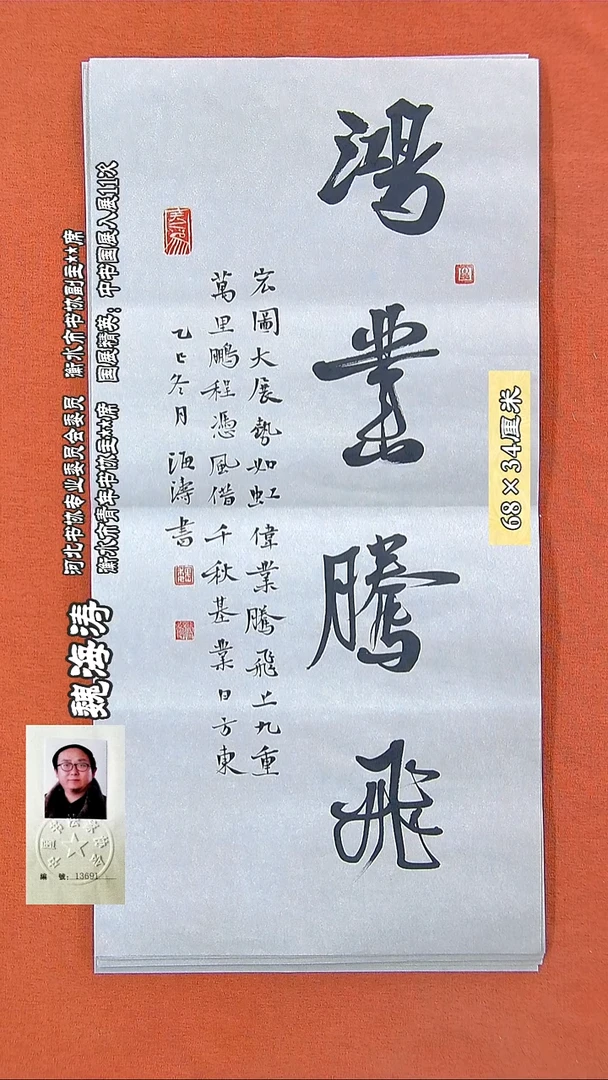 鴻業騰飛
宏圖大展勢如虹偉業騰飛上九重
萬里鵬程憑風借千秋基業日方東
乙巳冬月海濤書
68×34厘米
河北书协专业委员会委员 衡水市书协副主**席
衡水市青年书协主**席 国展精英：中书国展入展11次
魏海涛
編號：13691